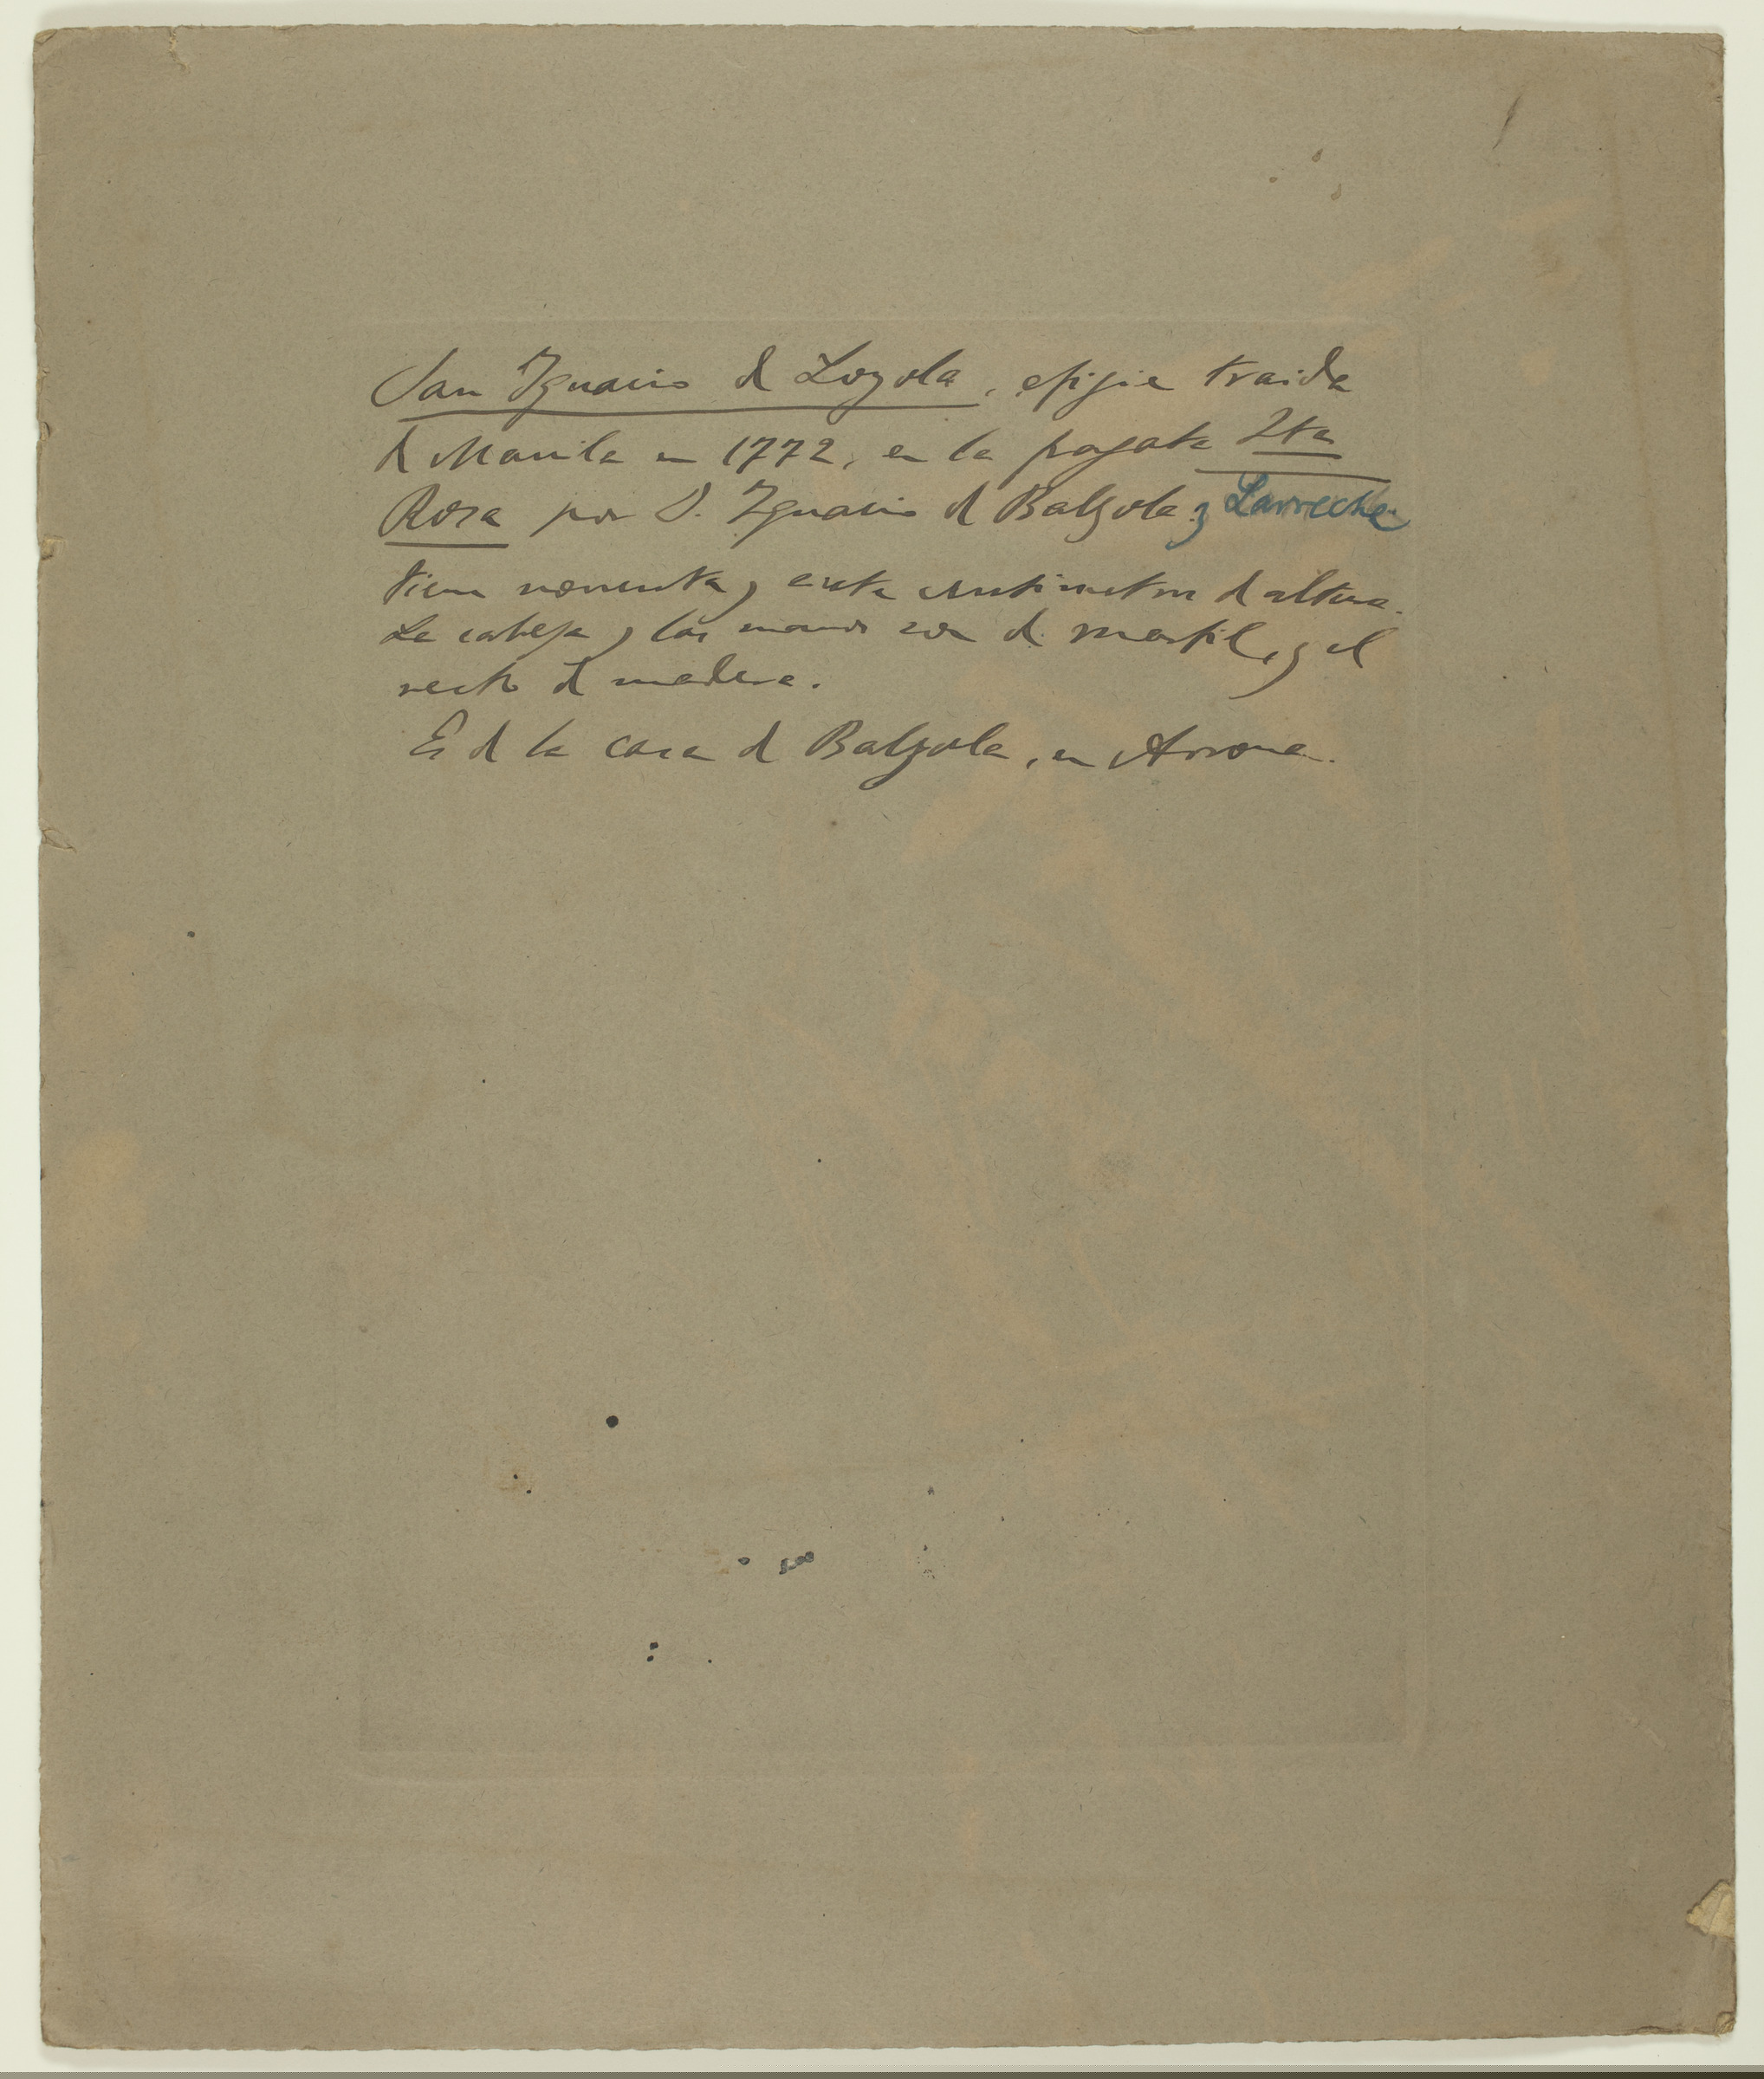 San Ignacio de Loyola, efigie traida
de Manila en 1772, en la fragata Sta
Rosa por D. Ignacio de Balzola y Larreche
tiene noventa y siete centimetros de altura.
La cabeza y las manos son de marfil, y el
resto de madera.
Es de la casa de Balzola, en Arrona.